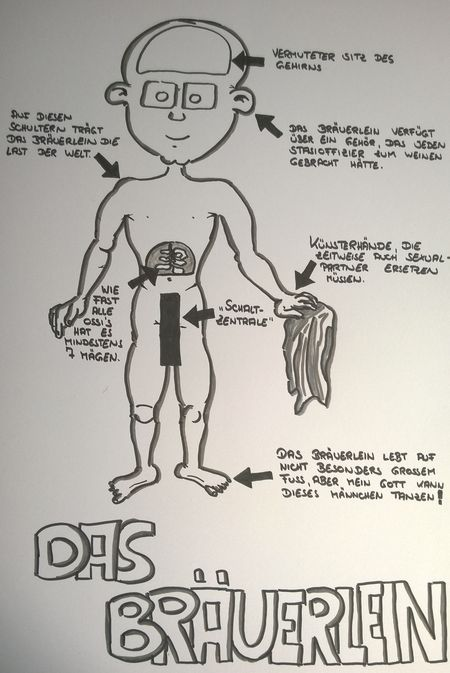 VERMUTETER SITZ DES
GEHIRNS
AUF DIESEN
SCHULTERN TRÄGT
DAS BRÄUERLEIN DIE
LAST DER WELT.
DAS BRÄUERLEIN VERFÜGT
ÜBER EIN GEHÖR, DAS JEDEN
STASIOFFIZIER ZUM WEINEN
GEBRACHT HÄTTE.
KÜNSTERHÄNDE, DIE
ZEITWEISE AUCH SEXUAL-
PARTNER ERSETZEN
MÜSSEN.
WIE
FAST
ALLE
OSSI'S
HAT ES
MINDESTENS
7 MÄGEN.
„SCHALT-
ZENTRALE"
DAS BRÄUERLEIN LEBT AUF
NICHT BESONDERS GROSSEM
FUSS, ABER MEIN GOTT KANN
DIESES MÄNNCHEN TANZEN!
DAS
BRÄUERLEIN